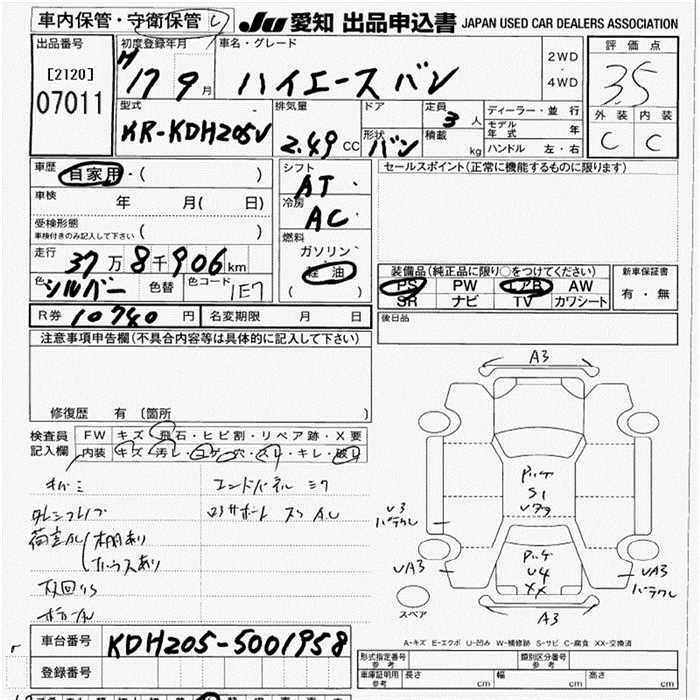 車内保管・守衛保管 Ju 愛知 出品申込書 JAPAN USED CAR DEALERS ASSOCIATION
出品番号 初度登録年月 車名・グレード 2WD・4WD 評価点
[2120] H 17 9月 ハイエースバン 3.5
07011
型式 排気量 ドア 定員 3人 ディーラー・並行 外装 内装
KR-KDH205V 2.49 CC 形状 バン 積載 kg モデル年式 年 C C
ハンドル 左・右
車歴 自家用・( ) シフト AT セールスポイント(正常に機能するものに限ります)
車検 年 月( 日) 冷房 AC
受検形態 ( )
車検付きのみ記入して下さい
燃料
ガソリン・
軽油
( )
走行 37万8千906km
色 シルバー 色替 色コード 1E7
装備品(純正品に限り○をつけてください) 新車保証書
PS PW エアB AW 有・無
SR ナビ TV カワシート
R券 10740円 名変期限 月 日 後日品
注意事項申告欄(不具合内容等は具体的に記入して下さい)
修復歴 有 (箇所 )
検査員記入欄 FW キズ・飛石・ヒビ割・リペア跡・X要
内装 キズ・汚レ・コゲ・穴・スレ・キレ・破レ
エンドパネル ミク
荷室ALL 本棚あり
A3
S1
V3
UA3
U4
XX
UA3
A3
スペア
A-キズ E-エクボ U-凹み W-補修跡 S-サビ C-腐食 XX-交換済
車台番号 KDH205-5001958
登録番号
形式指定番号 参考 類別区分番号 参考
車庫証明用 参考 長さ cm 幅 cm 高さ cm